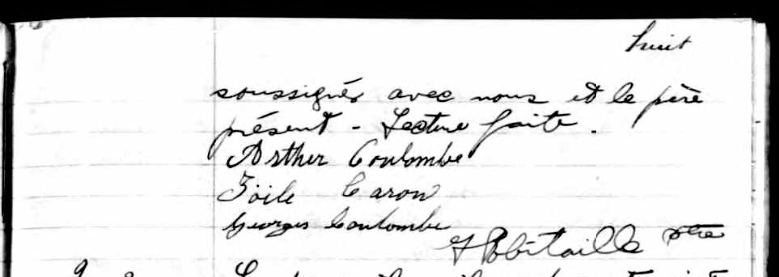 huit
soussignés avec nous et le père
présent - Lecture faite.
Arthur Coulombe
Zöile Caron
Georges Coulombe
J Robitaille ptre